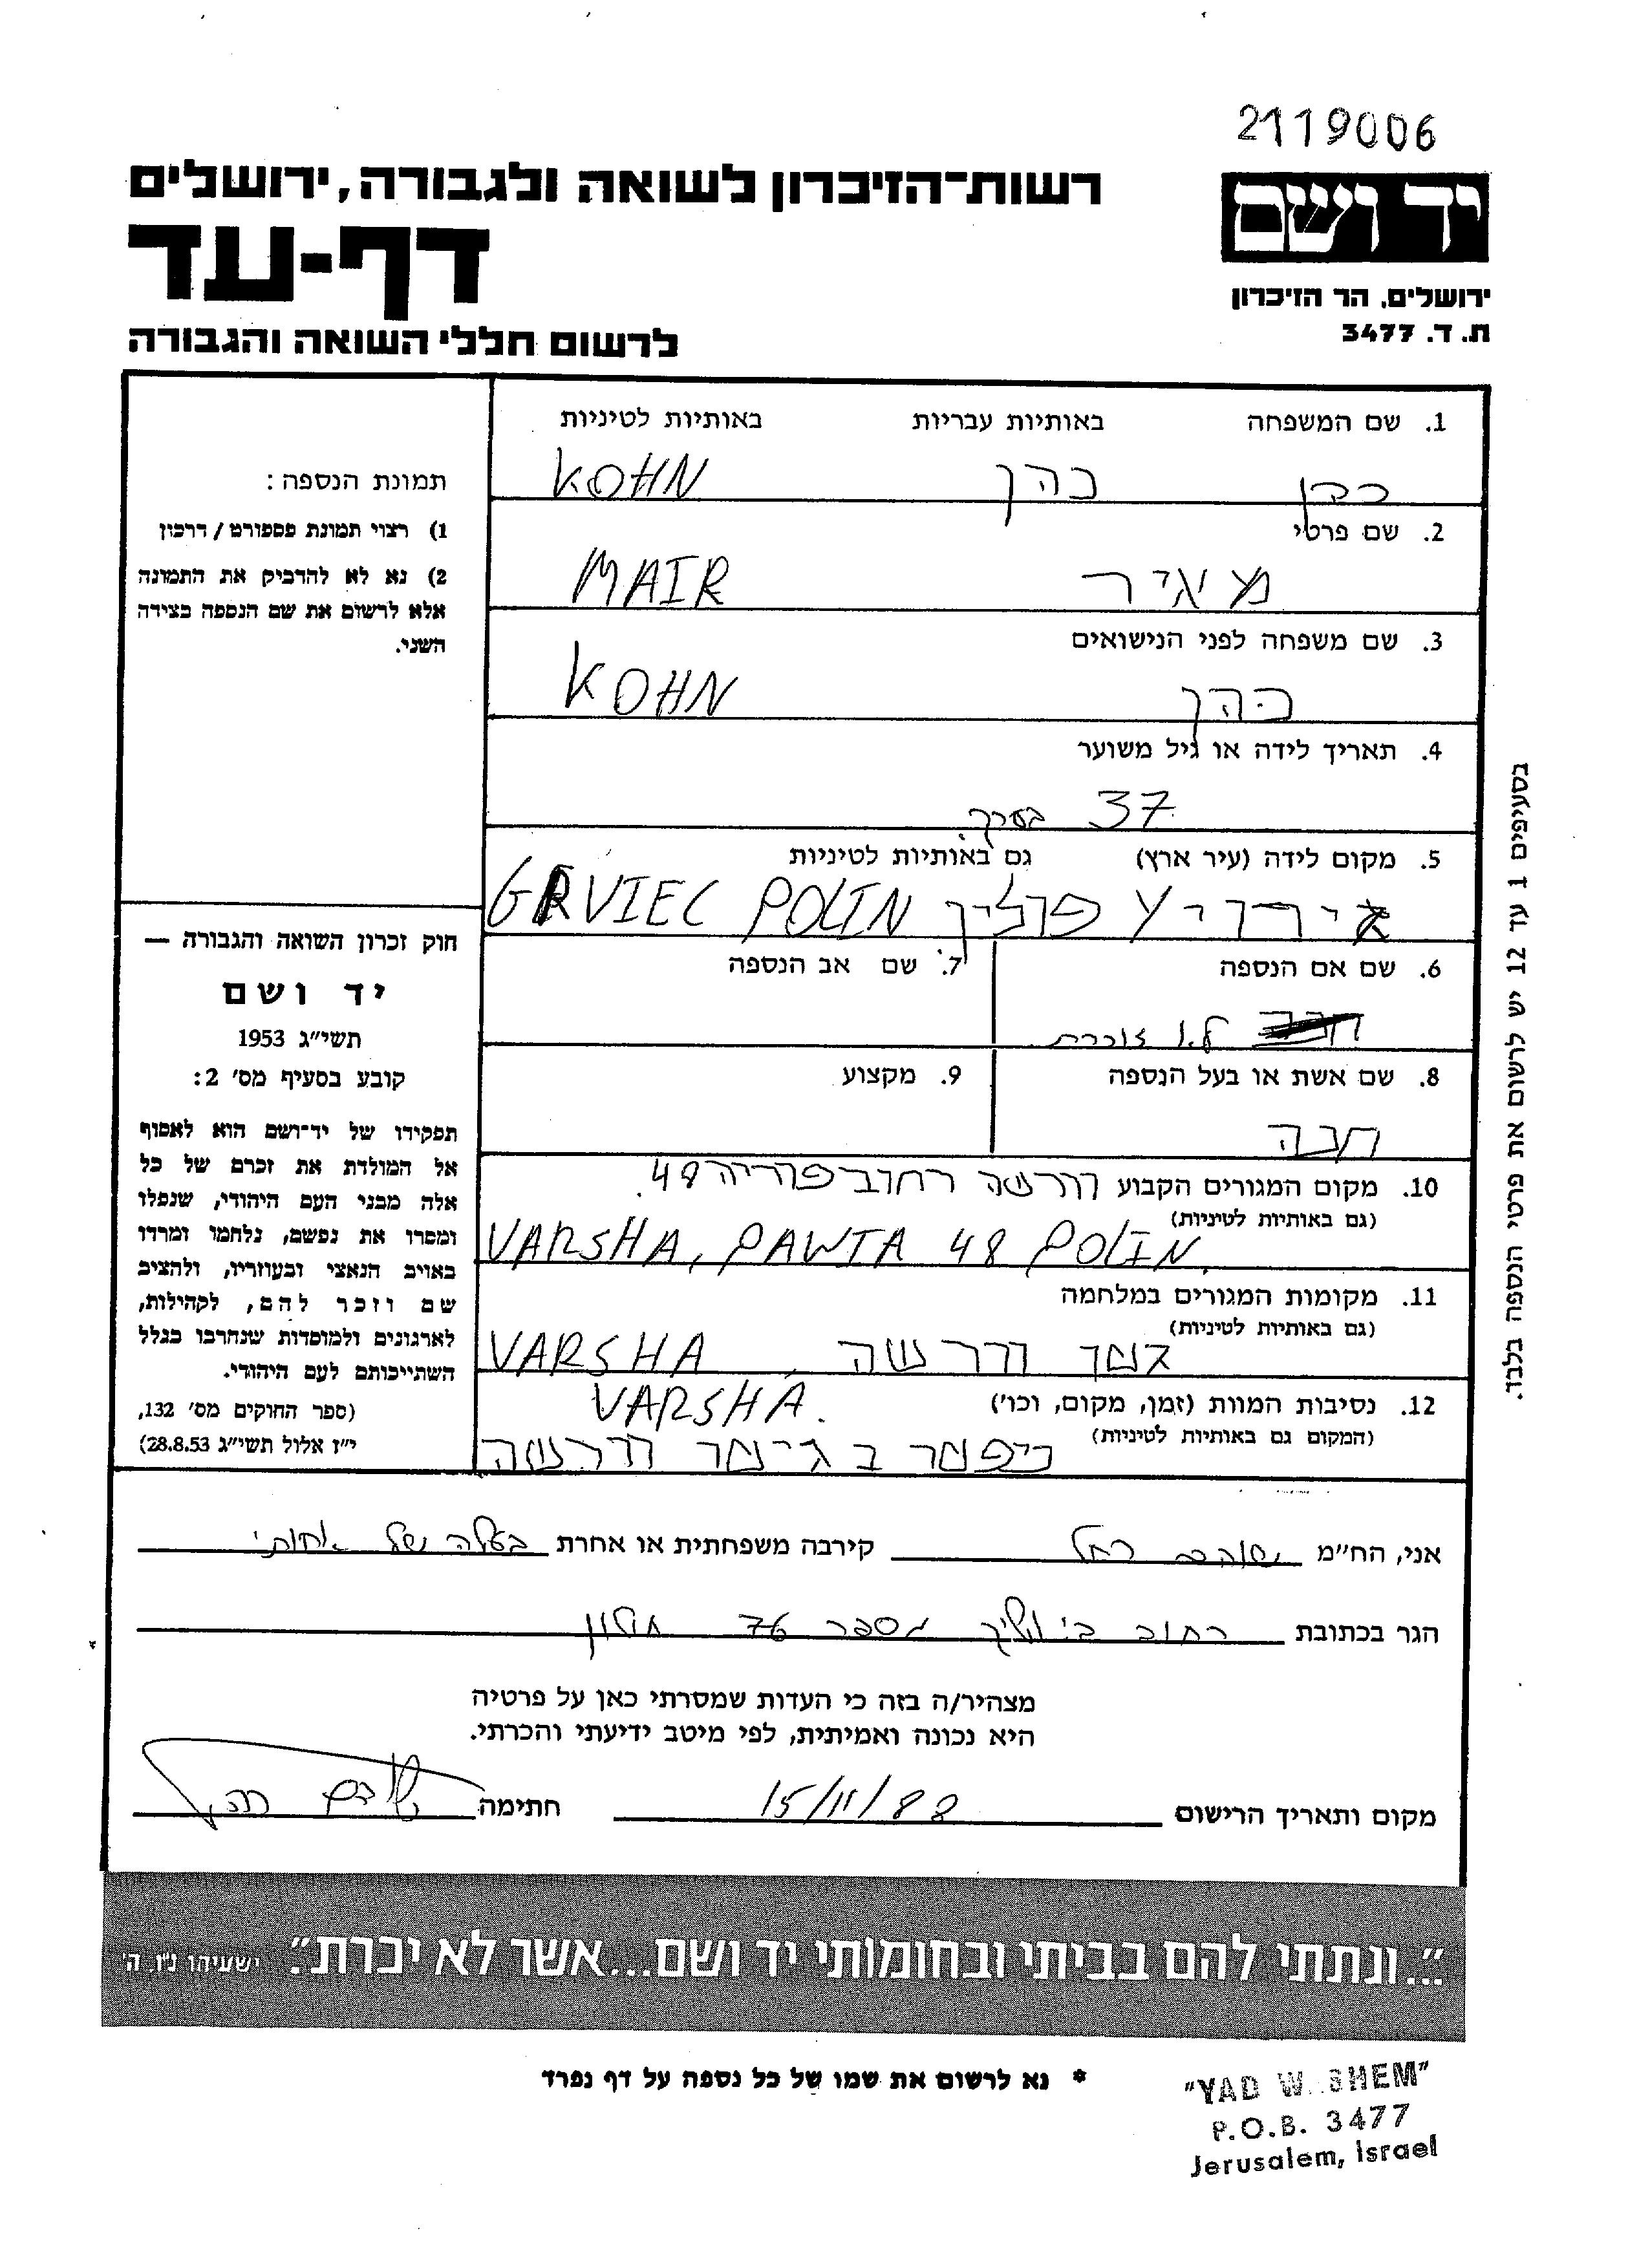 2119006
רשות-הזיכרון לשואה ולגבורה, ירושלים
יד ושם
דף-עד
ירושלים, הר הזיכרון
ת. ד. 3477
לרשום חללי השואה והגבורה
1. שם המשפחה באותיות עבריות באותיות לטיניות
כהן כהן KOHN
2. שם פרטי
מאיר MAIR
3. שם משפחה לפני הנישואים
כהן KOHN
4. תאריך לידה או גיל משוער
37 בערך
5. מקום לידה (עיר ארץ) גם באותיות לטיניות
פולין GRVIEC POLIN
6. שם אם הנספה 7. שם אב הנספה
לא זוכרת
8. שם אשת או בעל הנספה 9. מקצוע
חבה
10. מקום המגורים הקבוע וורשה רחוב 48
(גם באותיות לטיניות)
VARSHA, PAWIA 48 POLIN.
11. מקומות המגורים במלחמה
(גם באותיות לטיניות)
וורשה, VARSHA
12. נסיבות המוות (זמן, מקום, וכו')
VARSHA.
(המקום גם באותיות לטיניות)
ניפטר בגיטו וורשה
תמונת הנספה:
1) רצוי תמונת פספורט/דרכון
2) נא לא להדביק את התמונה
אלא לרשום את שם הנספה בצידה
השני.
חוק זכרון השואה והגבורה —
יד ושם
תשי"ג 1953
קובע בסעיף מס' 2:
תפקידו של יד-ושם הוא לאסוף
אל המולדת את זכרם של כל
אלה מבני העם היהודי, שנפלו
ומסרו את נפשם, נלחמו ומרדו
באויב הנאצי ובעוזריו, ולהציב
שם וזכר להם, לקהילות,
לארגונים ולמוסדות שנחרבו בגלל
השתייכותם לעם היהודי.
(ספר החוקים מס' 132,
י"ז אלול תשי"ג 28.8.53)
בסעיפים 1 עד 12 יש לרשום את פרטי הנספה בלבד.
אני, הח"מ שוהם רחל קירבה משפחתית או אחרת בעלה של אחותי
הגר בכתובת רחוב ביאליק מספר 76 חולון
מצהיר/ה בזה כי העדות שמסרתי כאן על פרטיה
היא נכונה ואמיתית, לפי מיטב ידיעתי והכרתי.
מקום ותאריך הרישום 15/11/88 חתימה שוהם רחל
"...ונתתי להם בביתי ובחומותי יד ושם...אשר לא יכרת". ישעיהו נ"ו, ה'
* נא לרשום את שמו של כל נספה על דף נפרד
"YAD W SHEM"
P.O.B. 3477
Jerusalem, Israel